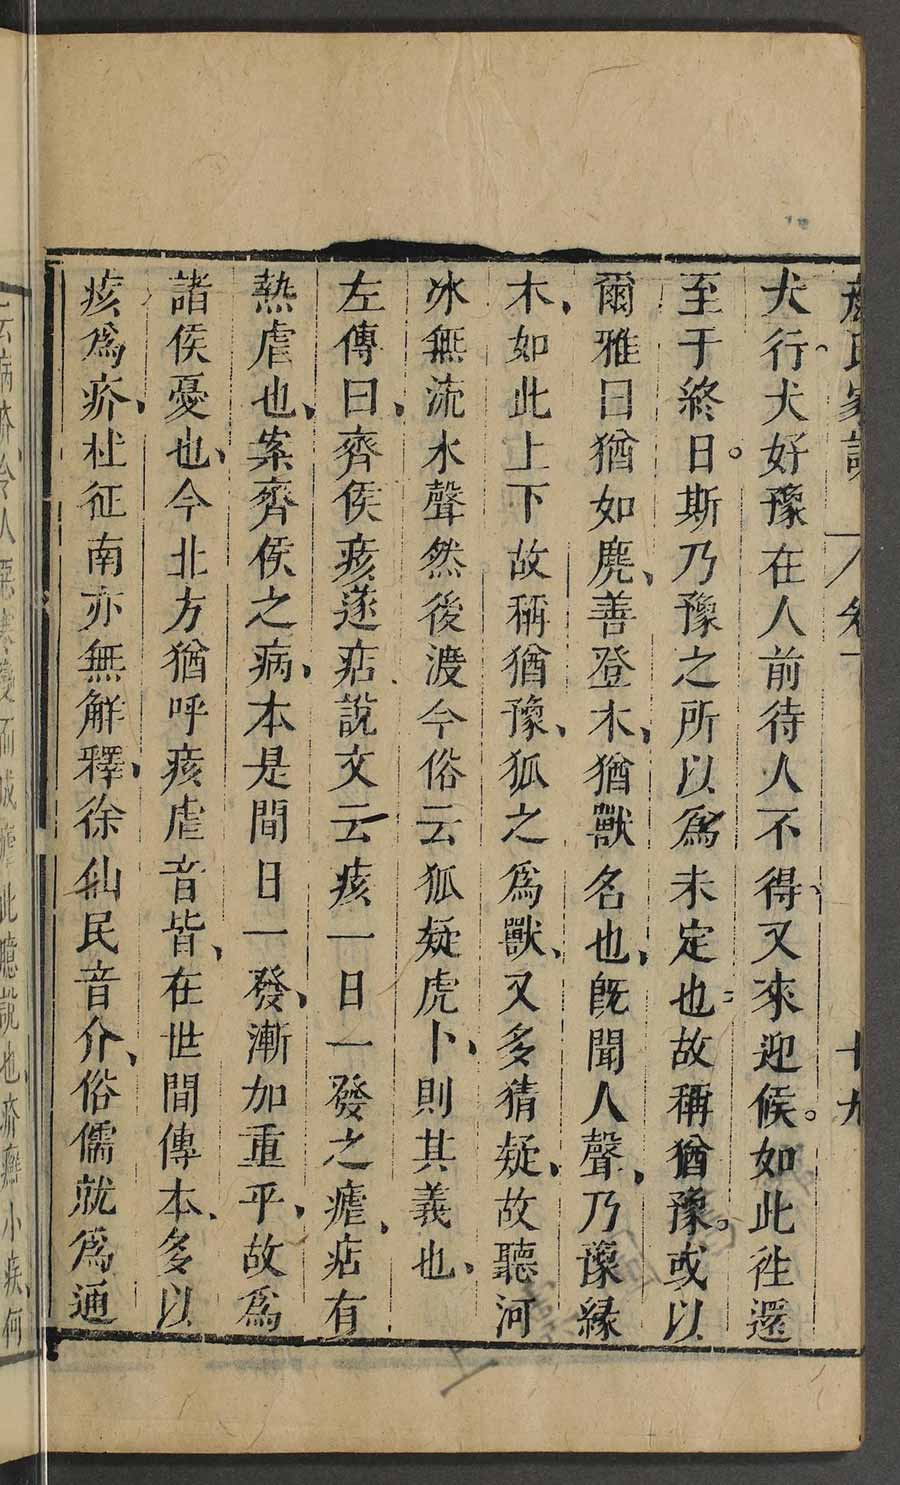 顔氏家訓 卷下 十九
犬行犬好豫在人前待人不得又來迎候。如此徃還
至于終日。斯乃豫之所以爲未定也故稱猶豫。或以
爾雅曰猶如麂、善登木、猶獸名也、旣聞人聲、乃豫緣
木、如此上下故稱猶豫、狐之爲獸、又多猜疑、故聽河
冰無流水聲然後渡今俗云狐疑虎卜、則其義也、
左傳曰、齊侯痎遂痁說文云痎一日一發之瘧、痁有
熱虐也、案齊侯之病、本是間日一發、漸加重乎、故爲
諸侯憂也、今北方猶呼痎虐音皆、在世間傳本、多以
痎爲疥、杜征南亦無解釋、徐仙民音介、俗儒就爲通
云病疥令人惡寒變而成瘧此臆說也疥癬小疾何